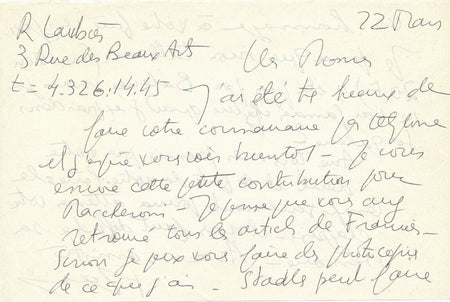 R Laubiès
22 Mars
3 Rue des Beaux Arts
t = 4.326.14.45 - J'ai été très heureux de
faire votre connaissance par téléphone
et j'espère vous voir bientôt - Je vous
envoie cette petite contribution pour
- Je pense que vous avez
retrouvé tous les articles de France -
Sinon je peux vous faire des photocopies
de ce que j'ai - Stadler peut faire